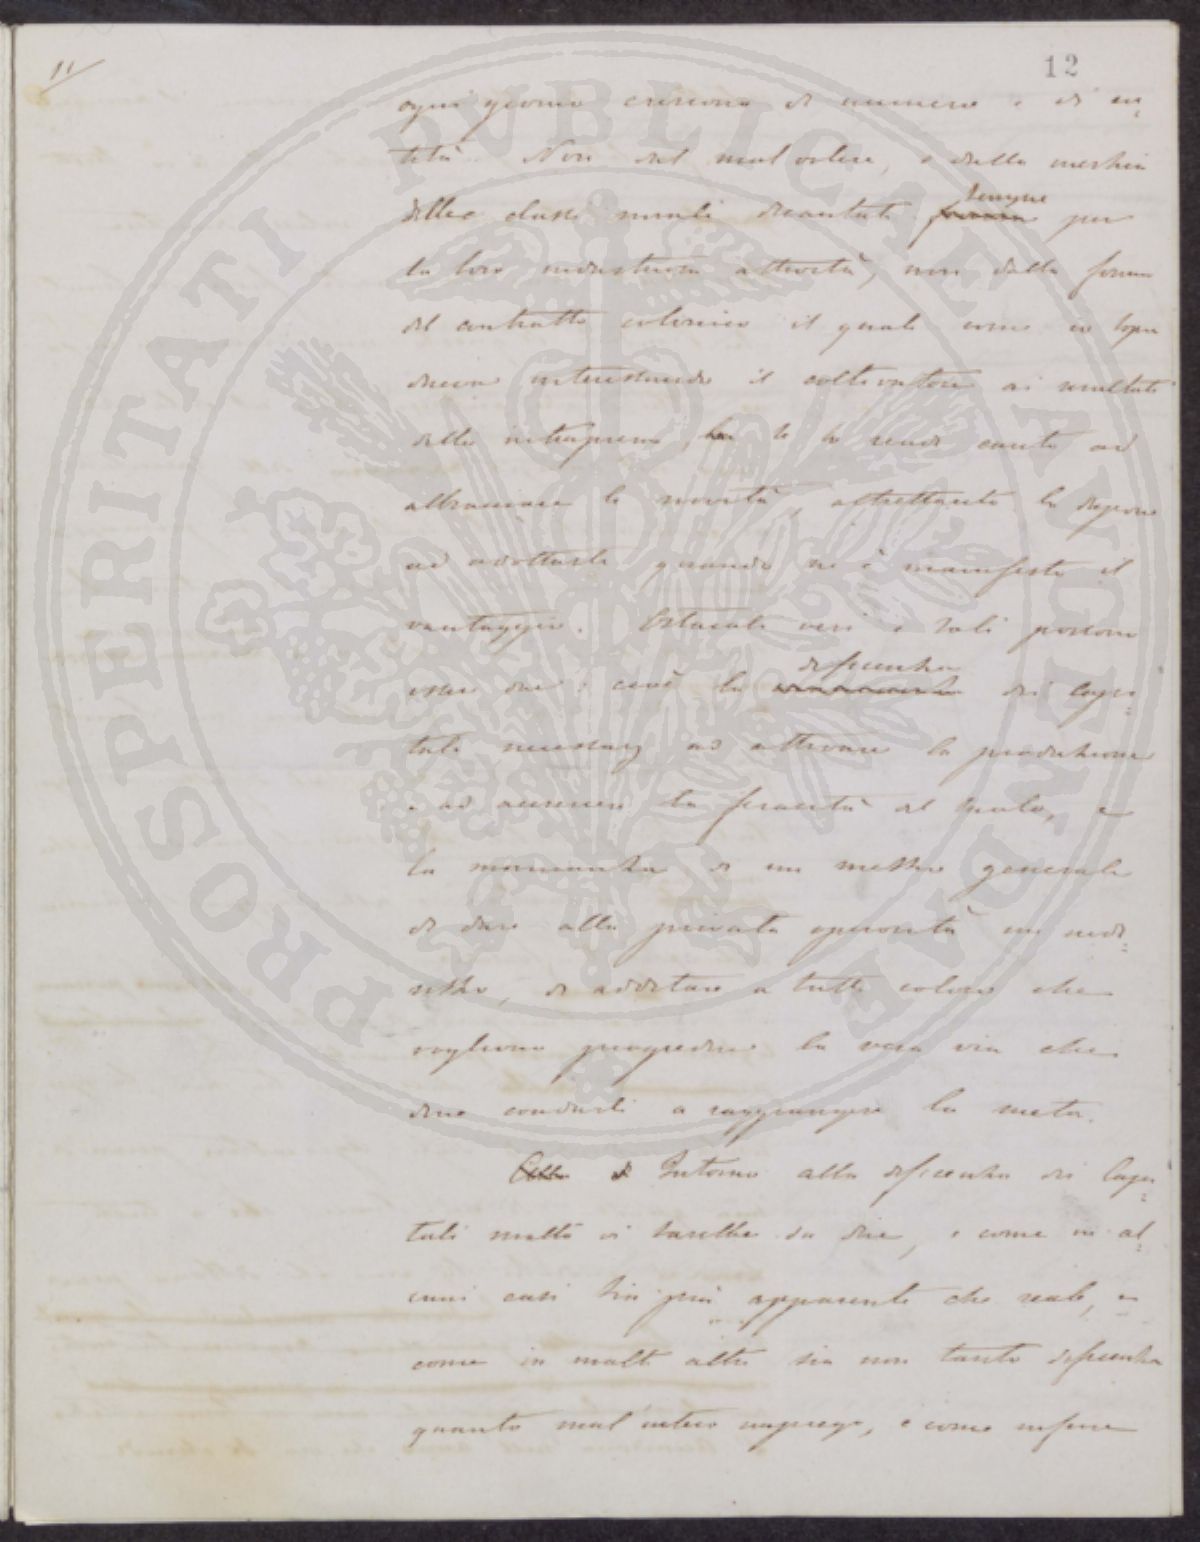 11
12
ogni giorno crescono di numero e di en=
tità. Non dal mal volere, o dalla inerzia
delle classi rurali decantate sempre per
la loro industriosa attività, non dalla forma
del contratto colonico il quale come in sopra
diceva interessando il coltivatore ai resultati
della intrapresa le lo rende cauto ad
abbracciare le novità, altrettanto lo dispone
ad adottarle quando ne è manifesto il
vantaggio. Ostacoli veri e soli possono
esser due: cioè la deficenza dei Capi=
tali necessarj ad attivare la produzione
e ad accrescere la feracità al suolo, e
la mancanza di un mezzo generale
di dare alla privata operosità un indi=
rizzo, di additare a tutti coloro che
vogliono progredire la vera via che
deve condurli a raggiungere la meta.
Intorno alla deficenza dei Capi=
tali molto vi sarebbe da dire, e come in al=
cuni casi sia più apparente che reale, e
come in molti altri sia non tanto deficenza
quanto mal'inteso impiego, e come infine
PROSPERITATI PUBLICAE AUGENDAE